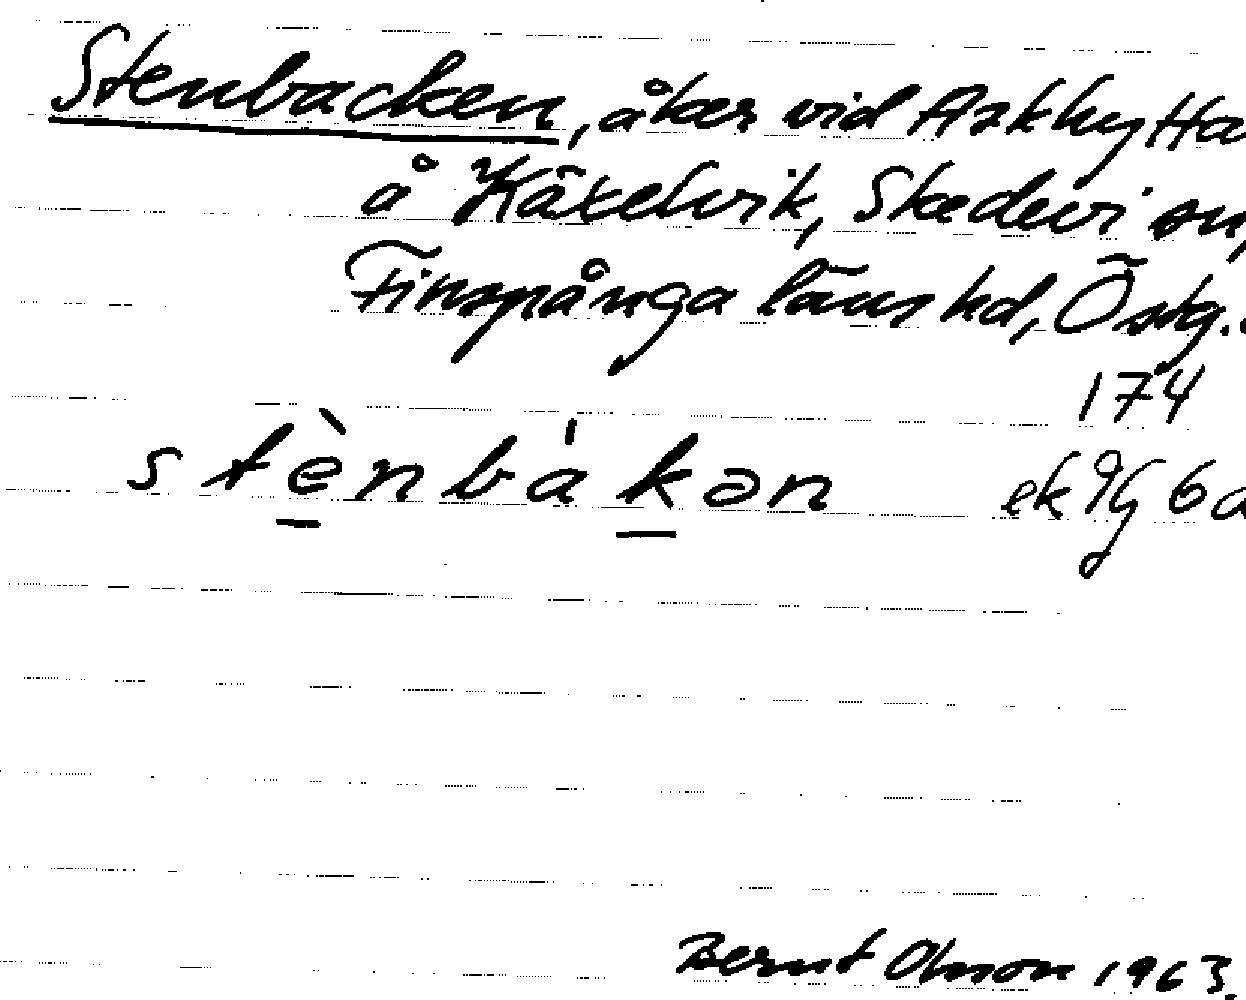 Stenbacken, åker vid Askhytta
å Käxelvik, Skedevi sn,
Finspånga läns hd, Östg.
174
stènbákən ek 9G 6a
Bernt Olsson 1963.